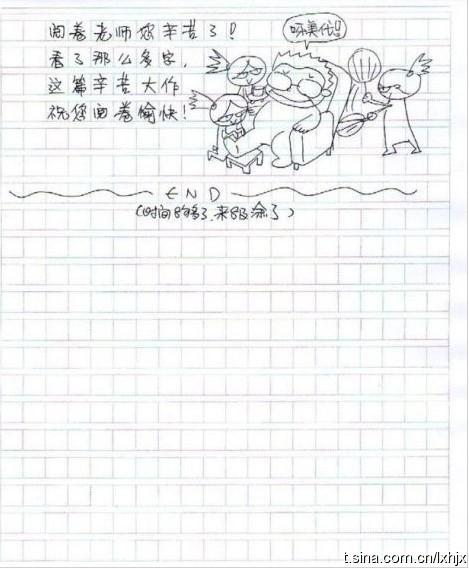 阅卷老师您辛苦了!
看了那么多字,
这篇辛苦大作
祝您阅卷愉快!
呀美代!!
END
(时间8够了,来8及涂了)
t.sina.com.cn/lxhjx